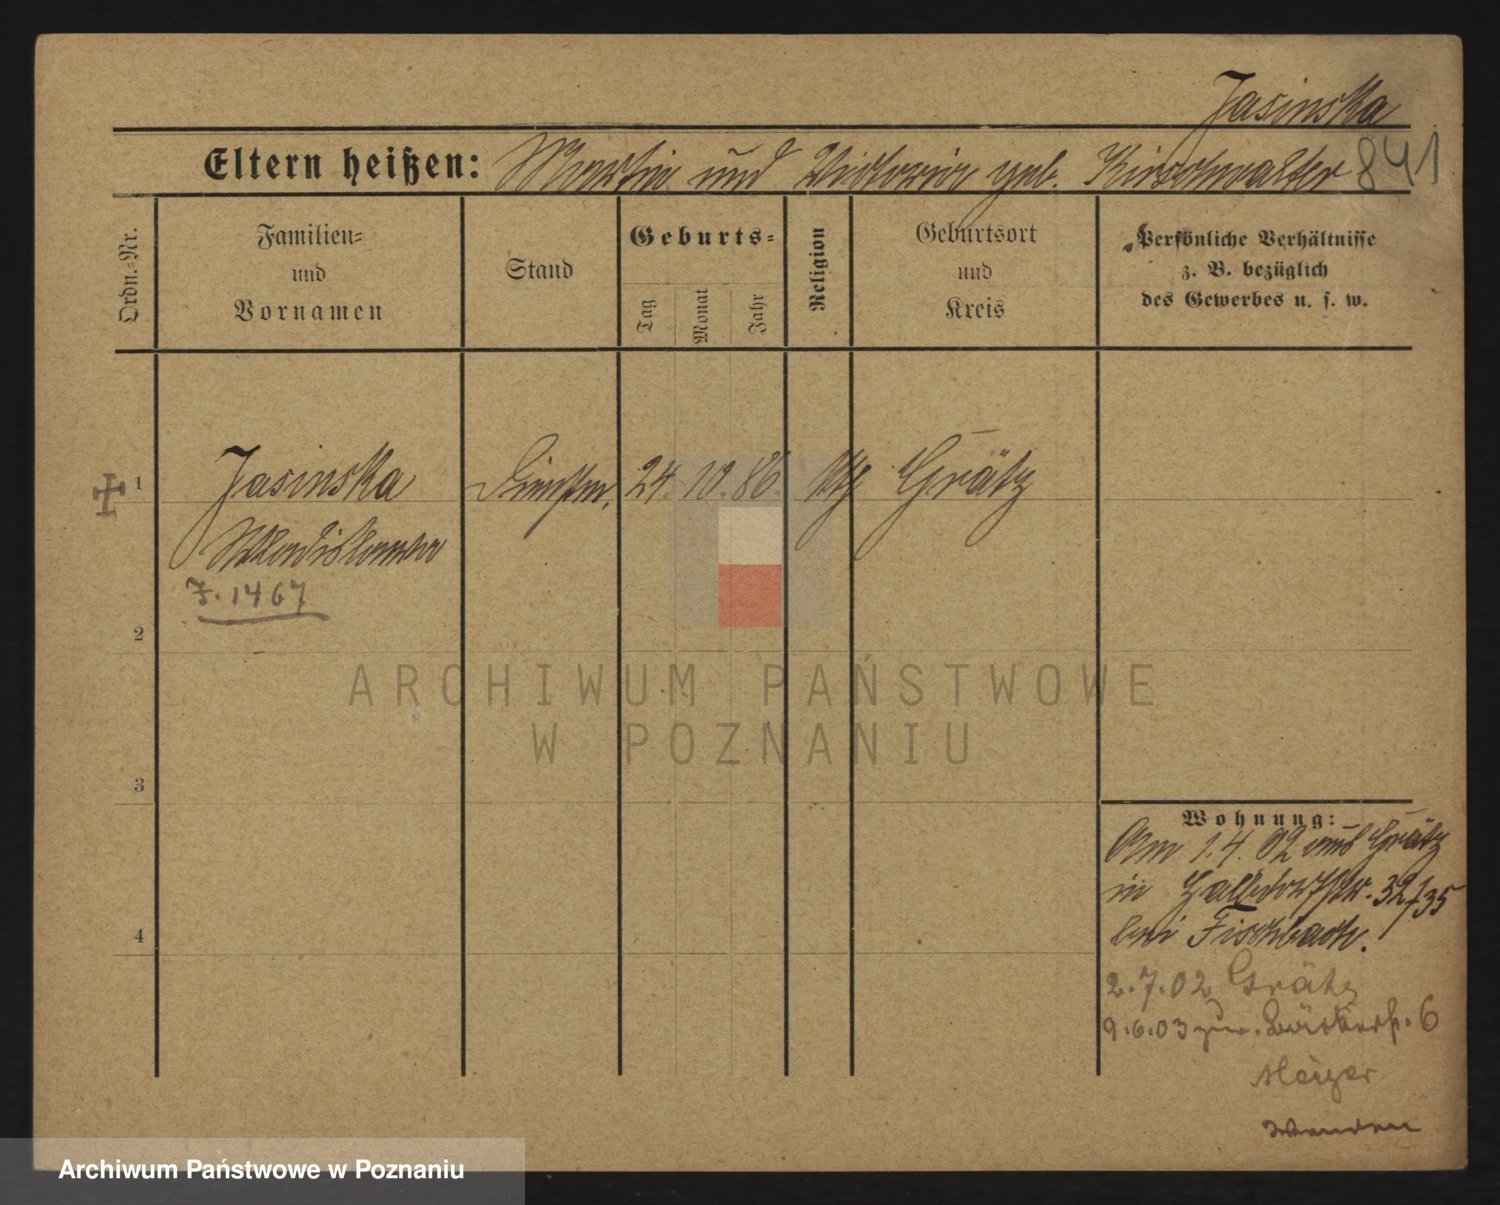 Jasinska
Eltern heißen: Martin und Victoria geb. Kirschwalter 841
Ordn.=Nr.
Familien=
und
Vornamen
Stand
Geburts=
Tag
Monat
Jahr
Religion
Geburtsort
und
Kreis
Persönliche Verhältnisse
z. B. bezüglich
des Gewerbes u. s. w.
1 Jasinska Dienstm. 24. 10. 86. Grätz
Wladislawa
F. 1467
2
3
4
Wohnung:
Am 1.4.02 aus Grätz
in Halbdorfstr. 32/35
bei Fischbach.
2.7.02 Grätz
9.6.03 zur. Bäckerstr. 6
Meizer
Wenden
ARCHIWUM PAŃSTWOWE
W POZNANIU
Archiwum Państwowe w Poznaniu